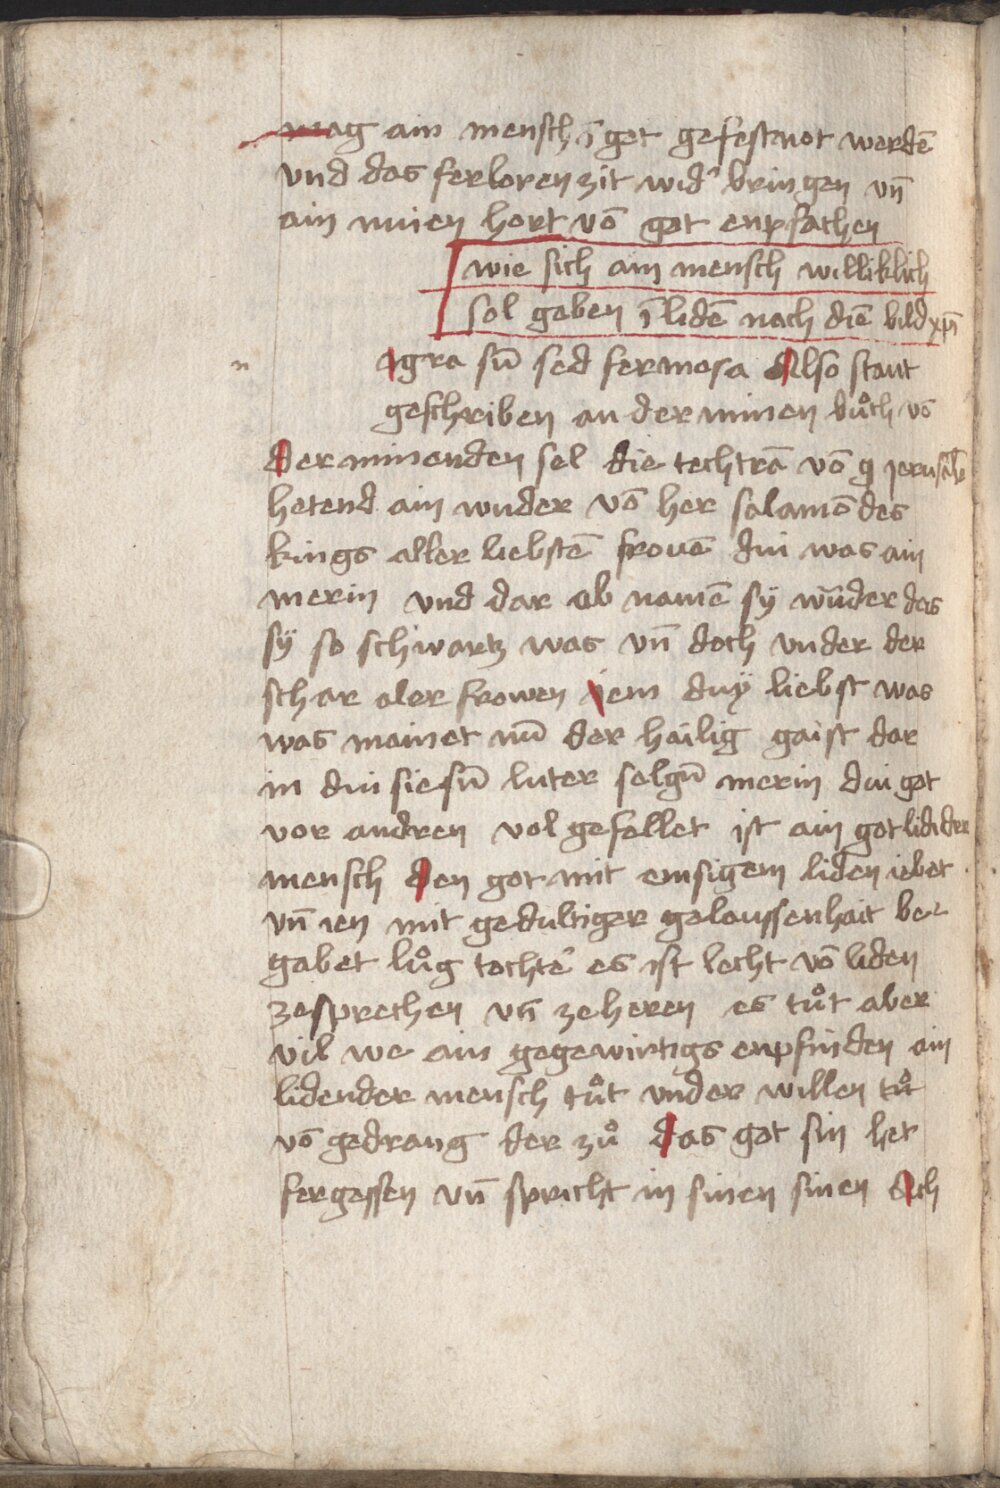 mag ain mensch ī got gefestnot werdē
vnd das ferloren zit wid' bringen vn̄
ain nuien hort vō got enpfachen
wie sich ain mensch williklich
sol geben ī lidē nach diē bild xp̄i
n
igra sū sed formosa Also staut
geschriben an der minen bůch vō
der minenden sel die tochtrā vō jerusalē
hetend ain wnder vō her salamō des
kings aller liebstē frouē dui was ain
merin vnd dar ab namē sy wūder das
sÿ so schwartz was vn̄ doch vnder der
schar aler frowen jem duÿ liebst was
was mainet nū der hailig gaist dar
in dui sie sū luter selgū merin dui got
vor andren vol gefallet ist ain got lidider
mensch den got mit emsigem liden iebet
vn̄ ien mit gedultiger gelaussenhait be-
gabet lůg tochtē es ist lecht vō liden
zesprechen vn̄ zeheren es tůt aber
vil we ain gegewirtigs enpfinden ain
lidender mensch tůt vnder willen tůt
vō gedrang der zů das got sin het
fergessen vn̄ spricht in sinen sinen Ach